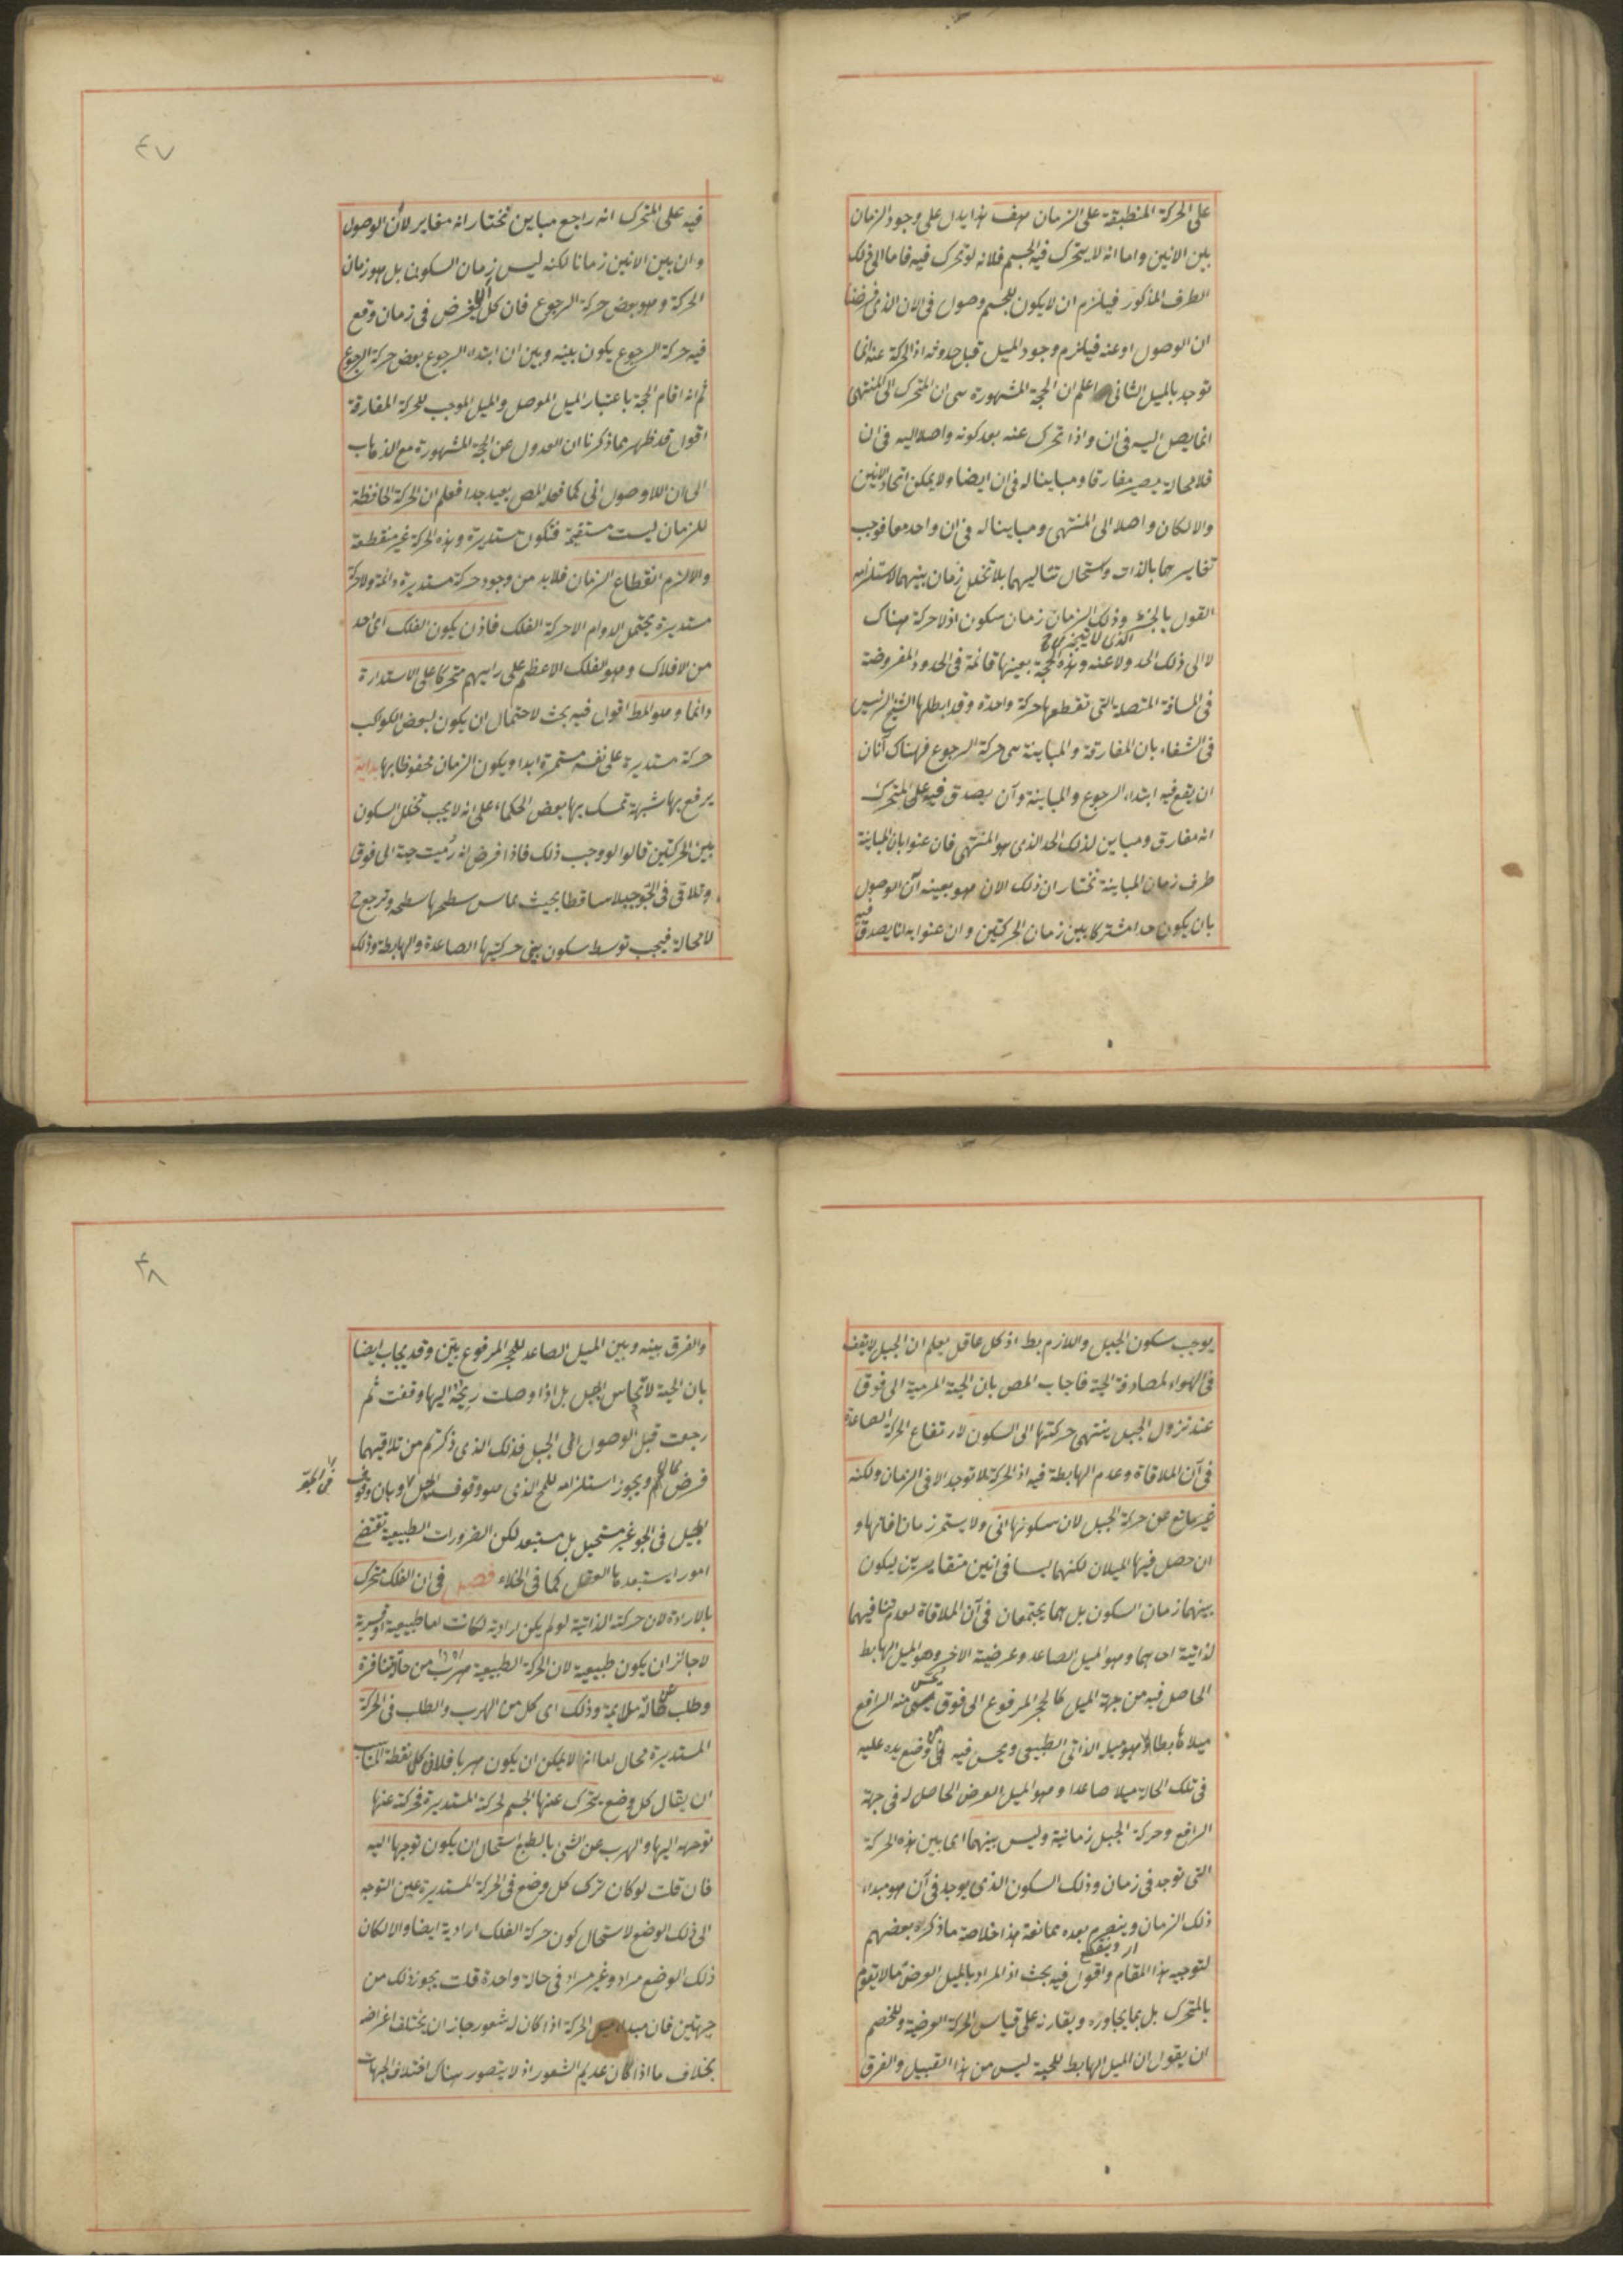 على الحركة المنطبقة على الزمان هف هذا يدل على وجود الزمان
بين الانين واما انه لا يتحرك فيه الجسم فلانه لو تحرك فيه فاما الى ذلك
الطرف المذكور فيلزم ان لا يكون للجسم وصول فى الان الذى فرضنا
ان الوصول او عنه فيلزم وجود الميل قبل حدوثه اذ الحركة عنه انما
توجد بالميل الثانى اعلم ان الحجة المشهورة هى ان المتحرك الى المنتهى
انما يصل اليه فى ان واذا تحرك عنه بعد كونه واصلا اليه فى ان
فلا محالة يصير مفارقا ومباينا له فى ان ايضا ولا يمكن اتحاد الانين
والا لكان واصلا الى المنتهى ومباينا له فى ان واحد معا فوجب
تغايرهما بالذات واستحال تتاليهما بلا تخلل زمان بينهما لاستلزامه
القول بالجزء وذلك الزمان زمان سكون اذ لا حركة هناك
الذى لا يتجزى
لا الى ذلك الحد ولا عنه وهذه الحجة بعينها قائمة فى الحدود المفروضة
فى المسافة المتصلة التى تقطعها حركة واحدة وقد ابطلها الشيخ الرئيس
فى الشفاء بان المفارقة والمباينة هى حركة الرجوع فهناك آنان
ان يقع فيه ابتداء الرجوع والمباينة وآن يصدق فيه على المتحرك
انه مفارق ومباين لذلك الحد الذى هو المنتهى فان عنوا بان المباينة
طرف زمان المباينة نختار ان ذلك الان هو بعينه آن الوصول
بان يكون حدا مشتركا بين زمان الحركتين وان عنوا به انا يصدق
فيه
٤٧
فيه على المتحرك انه راجع مباين نختار انه مغاير لان الوصول
وان بين الانين زمانا لكنه ليس زمان السكون بل هو زمان
الحركة وهو بعض حركة الرجوع فان كل ان يفرض فى زمان وقع
فيه حركة الرجوع يكون بينه وبين ان ابتداء الرجوع بعض حركة الرجوع
ثم انه اقام الحجة باعتبار الميل الموصل والميل الموجب للحركة المفارقة
اقول قد ظهر مما ذكرنا ان العدول عن الحجة المشهورة مع الذهاب
الى ان اللاوصول انى كما فعله المص بعيد جدا فعلم ان الحركة الحافظة
للزمان ليست مستقيمة فتكون مستديرة وهذه الحركة غير منقطعة
والا لزم انقطاع الزمان فلابد من وجود حركة مستديرة دائمة ولا حركة
مستديرة يحتمل الدوام الا حركة الفلك فاذن يكون الفلك اى احد
من الافلاك وهو الفلك الاعظم على رايهم متحركا على الاستدارة
دائما وهو المط اقول فيه بحث لاحتمال ان يكون لبعض الكواكب
حركة مستديرة على نفسه مستمرة ابدا ويكون الزمان محفوظا بها هداية
يرفع بها شبهة تمسك بها بعض الحكماء على انه لا يجب تخلل السكون
بين الحركتين قالوا لو وجب ذلك فاذا فرض انه رُميت حبة الى فوق
وتلاقى فى الجوّ جبلا ساقطا بحيث يماس سطحها سطحه وترجع ح
لا محالة فيجب توسط سكون بين حركتيها الصاعدة والهابطة وذلك
يوجب سكون الجبل واللازم بط اذ كل عاقل يعلم ان الجبل لا يقف
فى الهواء لمصادفة الحبة فاجاب المص بان الحبة المرمية الى فوق
عند نزول الجبل ينتهى حركتها الى السكون لارتفاع الحركة الصاعدة
فى آن الملاقاة وعدم الهابطة فيه اذ الحركة لا توجد الا فى الزمان ولكنه
غير مانع عن حركة الجبل لان سكونها انى ولا يستمر زمانا فانها و
ان حصل فيها الميلان لكنهما ليسا فى انين متغايرين ليكون
بينهما زمان السكون بل هما يجتمعان فى آن الملاقاة لعدم تنافيهما
لذاتية احدهما وهو الميل الصاعد وعرضية الاخر وهو الميل الهابط
الحاصل فيه من جهة الميل كالحجر المرفوع الى فوق يحس منه الرافع
ميلا هابطا هو ميله الذاتى الطبيعى ويحس فيه من وضع يده عليه
فى تلك الحالة ميلا صاعدا وهو الميل العرضى الحاصل له فى جهة
الرافع وحركة الجبل زمانية وليس بينهما اى بين هذه الحركة
التى توجد فى زمان وذلك السكون الذى يوجد فى آن هو مبداء
ذلك الزمان وينصرم بعده ممانعة هذا خلاصة ما ذكره بعضهم
لتوجيه هذا المقام واقول فيه بحث اذ المراد بالميل العرضى ما لا يقوم
بالمتحرك بل بما يجاوره ويقارنه على قياس الحركة العرضية وللخصم
ان يقول ان الميل الهابط للحبة ليس من هذا القبيل والفرق
٤٨
والفرق بينه وبين الميل الصاعد للحجر المرفوع بيّن وقد يجاب ايضا
بان الحبة لا تماس الجبل بل اذا وصلت ريحه اليها وقفت ثم
رجعت قبل الوصول الى الجبل فذلك الذى ذكرتم من تلاقيهما
فرض محال ويجوز استلزامه للمح الذى هو وقوف الجبل وبان وقوف
فى الجو
الجبل فى الجو غير مستحيل بل مستبعد لكن الضرورات الطبيعية تقتضى
امورا يستبعدها العقل كما فى الخلاء فصل فى ان الفلك متحرك
بالارادة لان حركته الذاتية لو لم يكن ارادية لكانت اما طبيعية او قسرية
لا جائز ان يكون طبيعية لان الحركة الطبيعية هرب من حالة منافرة
وطلب حالة ملايمة وذلك اى كل من الهرب والطلب فى الحركة
المستديرة محال اما انه لا يمكن ان يكون هربا فلان كل نقطة المناسب
ان يقال كل وضع يتحرك عنها الجسم لحركة المستديرة فحركته عنها
توجهه اليها والهرب عن الشئ بالطبع استحال ان يكون توجها اليه
فان قلت لو كان ترك كل وضع فى الحركة المستديرة عين التوجه
الى ذلك الوضع لاستحال كون حركة الفلك ارادية ايضا والا لكان
ذلك الوضع مراد وغير مراد فى حالة واحدة قلت يجوز ذلك من
جهتين فان مبداء الحركة اذا كان له شعور جاز ان يختلف اغراضه
بخلاف ما اذا كان عديم الشعور اذ لا يتصور هناك اختلاف الجهات